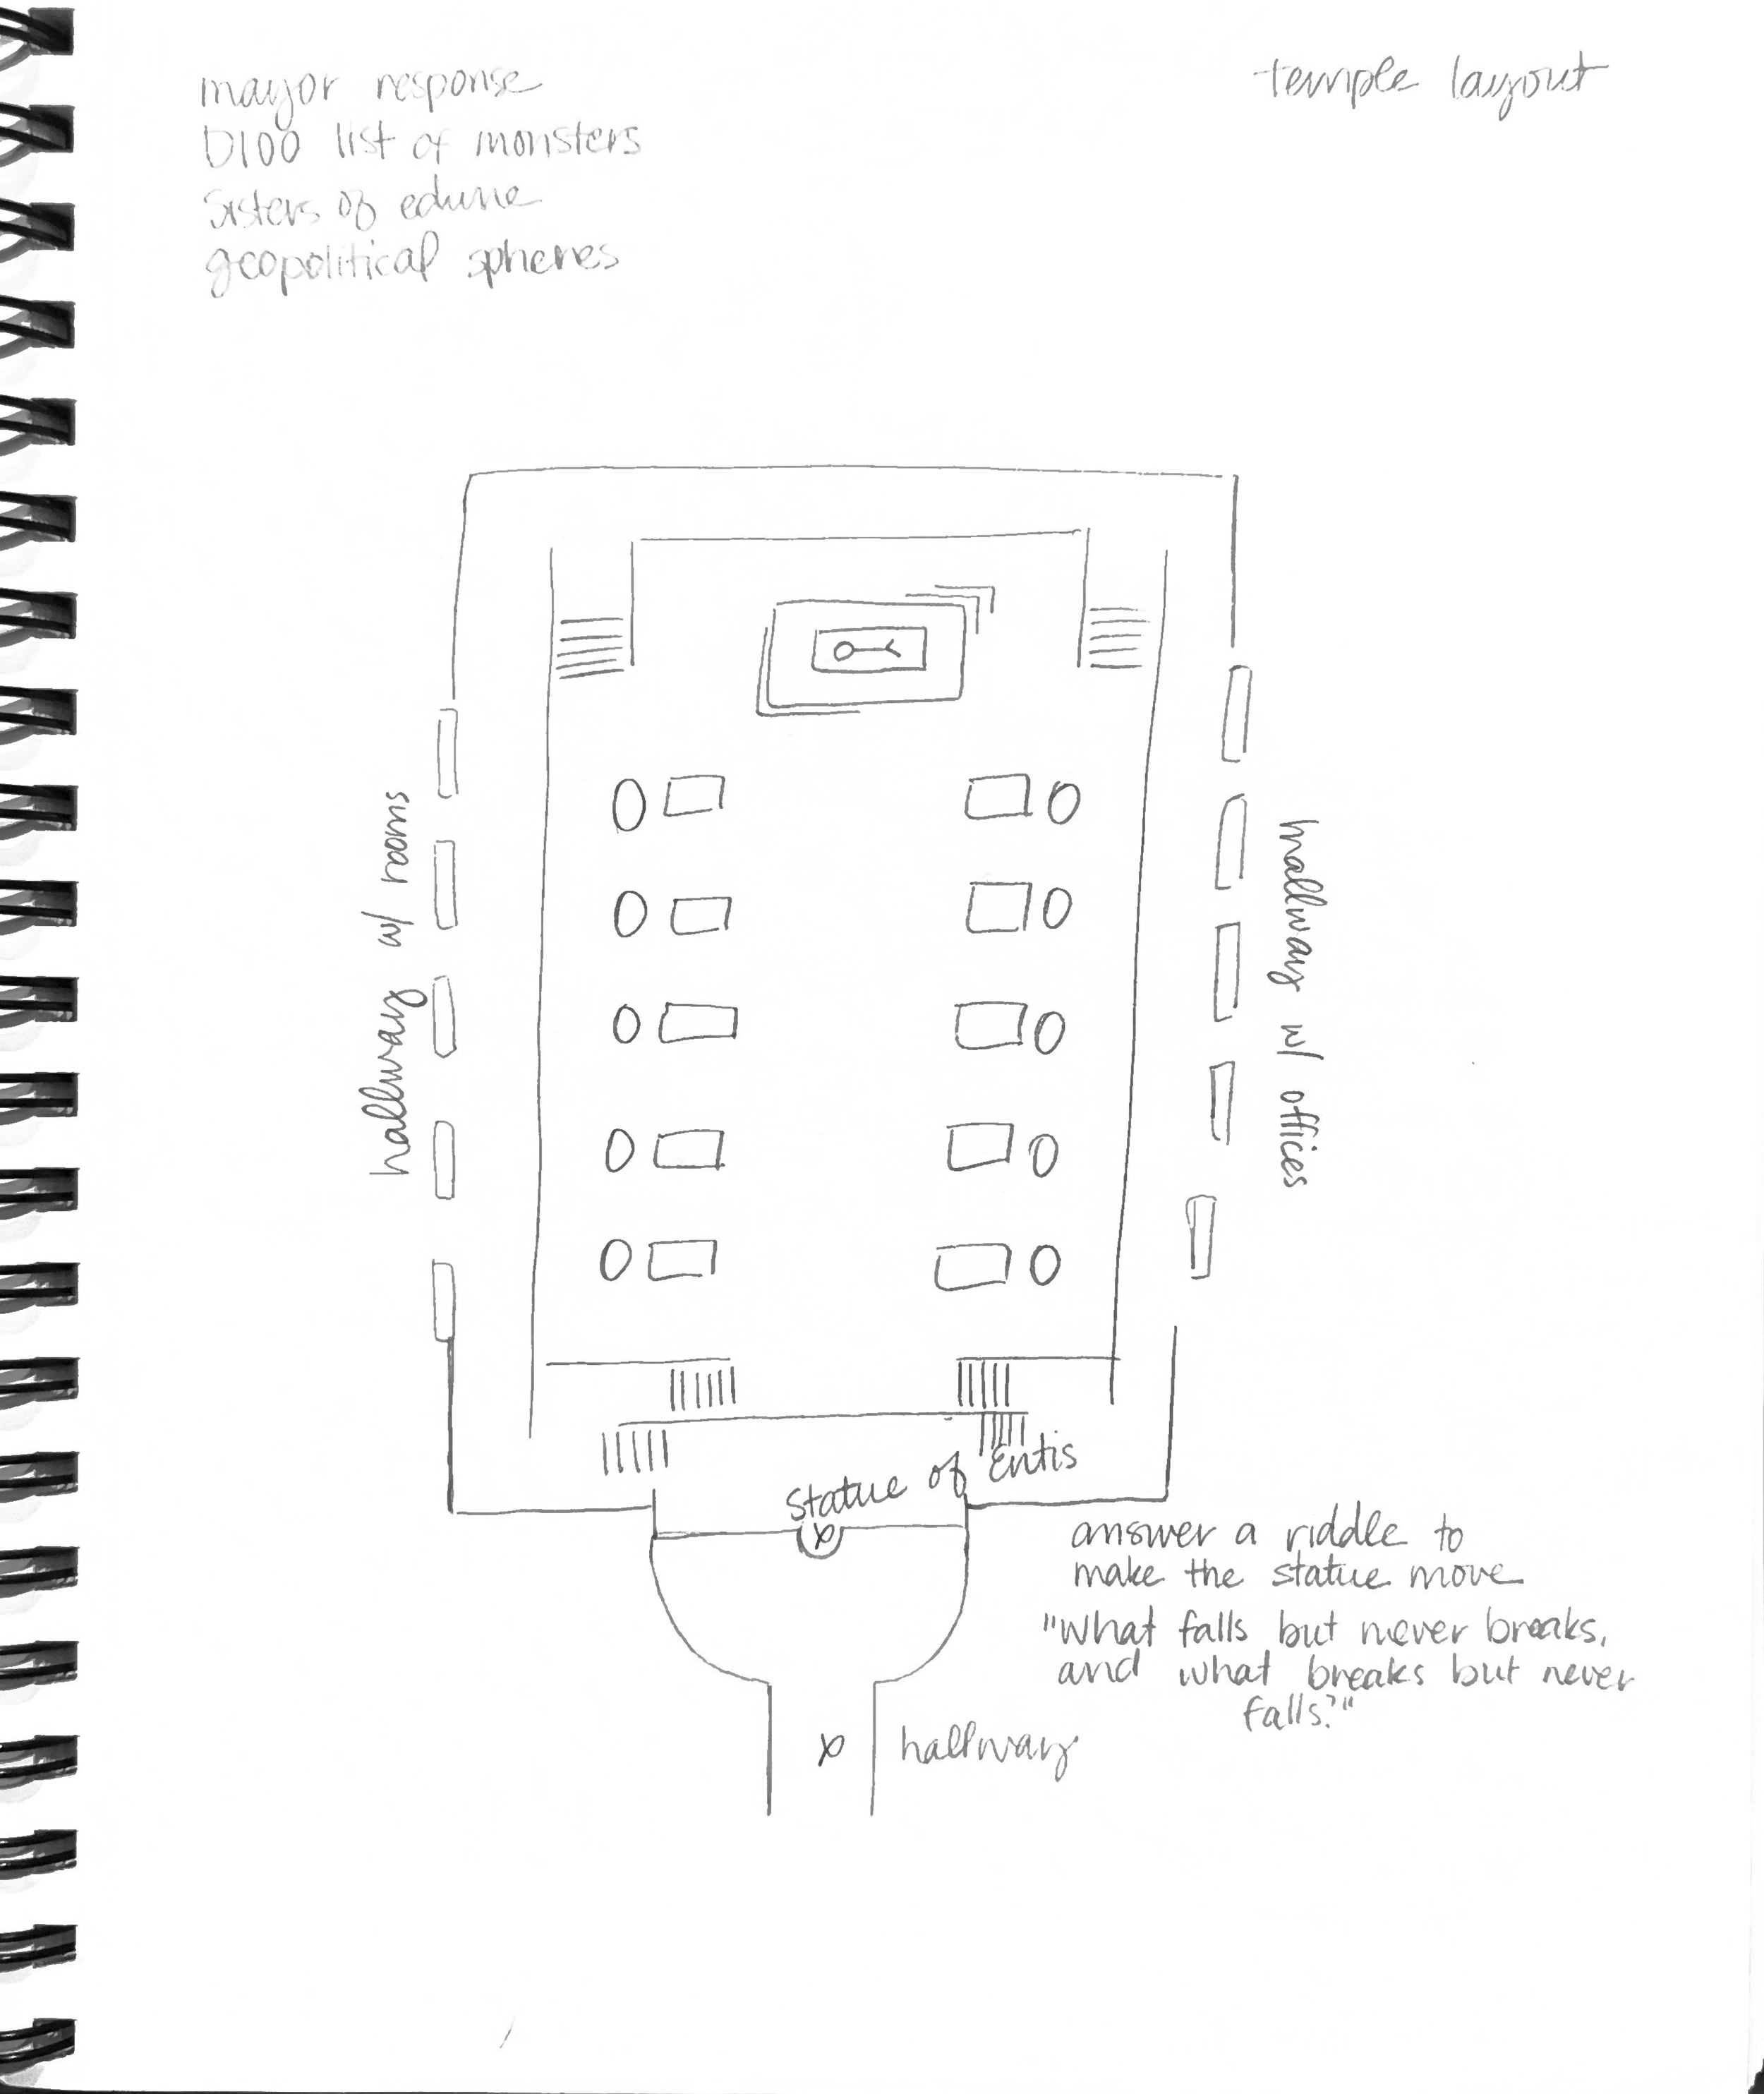 mayor response
D100 list of monsters
Sisters of edune
geopolitical spheres
temple layout
hallway w/ rooms
hallway w/ offices
Statue of Entis
answer a riddle to
make the statue move
"What falls but never breaks,
and what breaks but never
falls?"
hallway